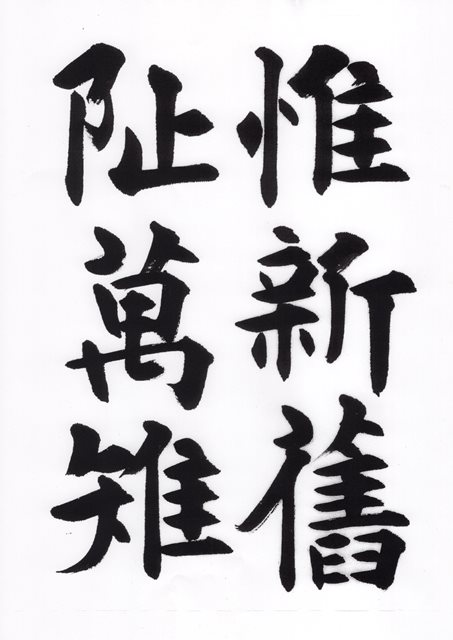 惟新舊
阯萬雉